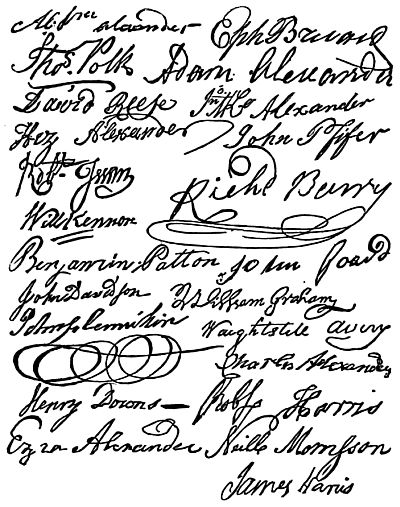 Alexander Eph Brevard
Thos. Polk Adam Alexander
David Reese Jno McK Alexander
Hez Alexander John Pfifer
Robt. Irwin
Richd Barry
Will Kennon
Benjamin Patton John Foard
John Davidson William Graham
John Flennikin Waightstill Avery
Charles Alexander
Henry Downs Robt Harris
Ezra Alexander Neill Morrison
James Harris